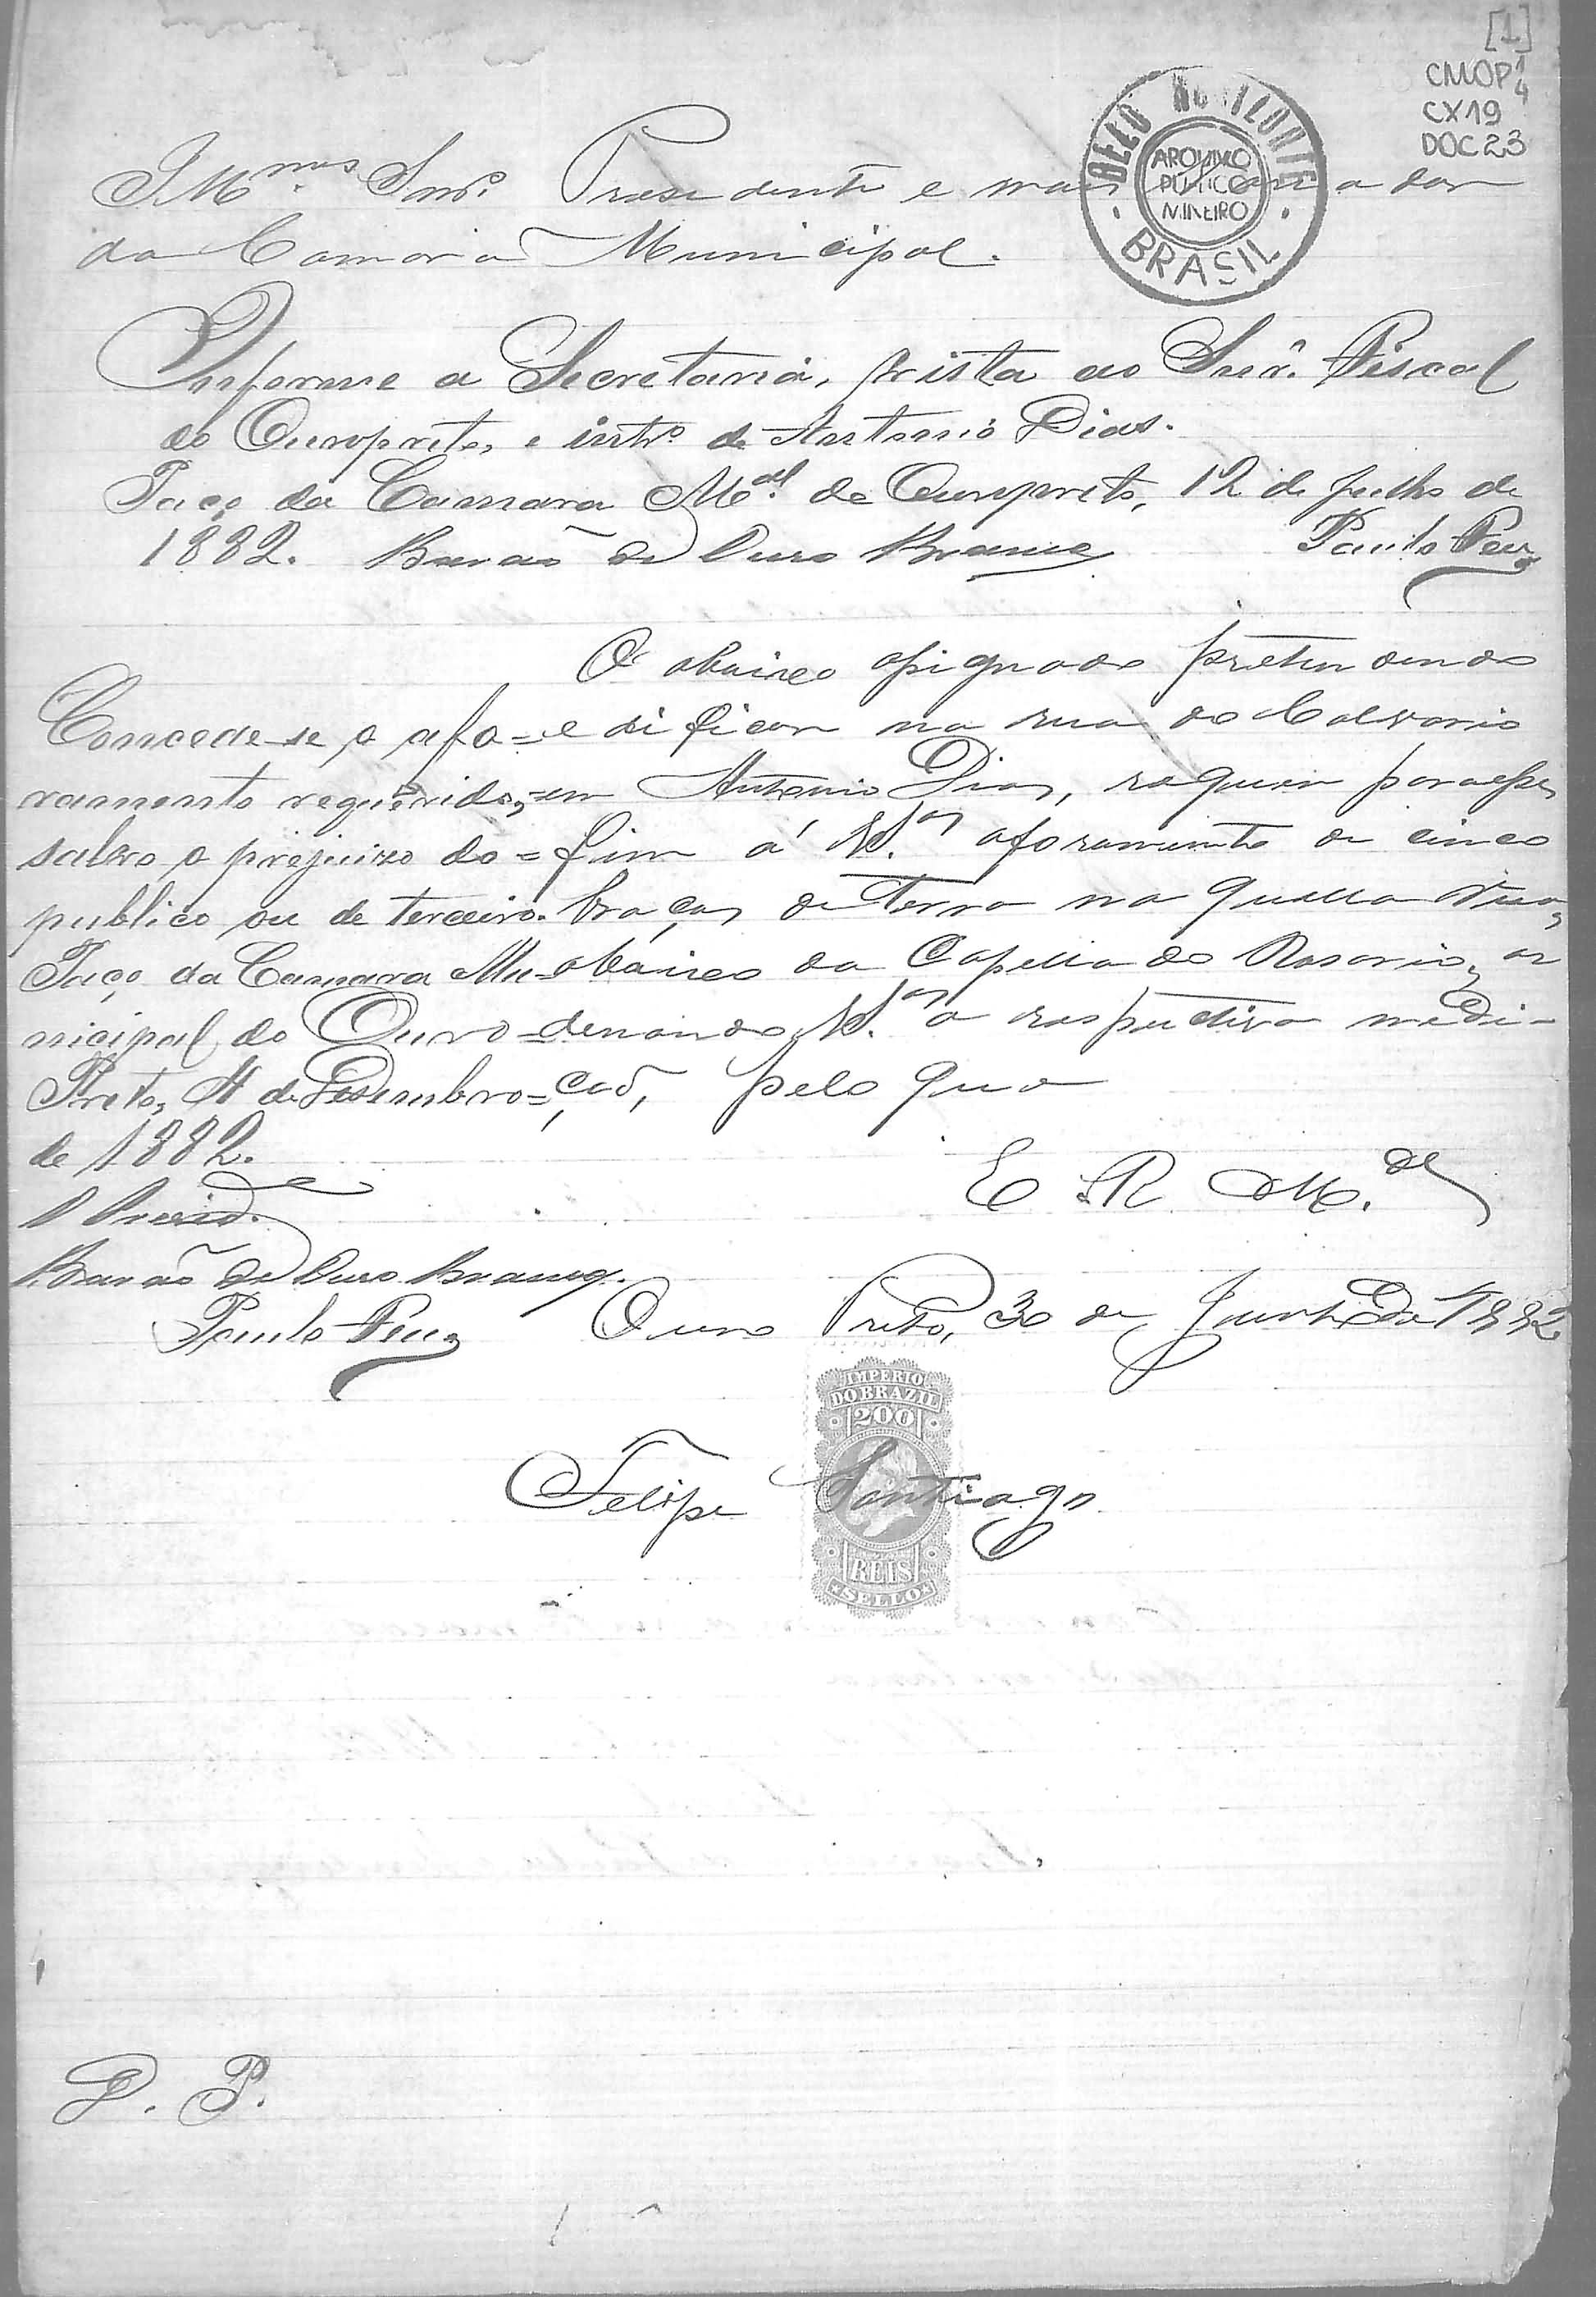 [1]
CMOP 1/4
CX19
DOC 23
BELLO HORIZONTE
ARQUIVO
PUBLICO
MINEIRO
BRASIL
Illmos. Snrs. Presidente e mais
da Camara Municipal.
Informe a Secretaria, vista ao Snr. Fiscal
do Ouropreto, e intro. de Antonio Dias.
Paço da Camara Mal. de Ouropreto, 12 de Julho de
1882. Barão de Ouro Branco
O abaixo assignado pretendendo
edificar na rua do Calvario
em Antonio Dias, requer para esse
fim á V.Sas aforamento de cinco
braças de terra naquella rua,
abaixo da Capella do Rosario, or
denando V.Sas a respectiva medi-
ção, pelo que
E. R. M.ce
Ouro Preto, 30 de Junho de 1882
Felipe Santiago
IMPERIO
DO BRAZIL
200
REIS
SELLO
Concede-se o afo=
ramento requerido,=
salvo o prejuizo do=
publico ou de terceiro.
Paço da Camara Mu=
nicipal do Ouro=
Preto, 4 de Desembro=
de 1882.
O Presid.e
Barão de Ouro Branco.
D. P.